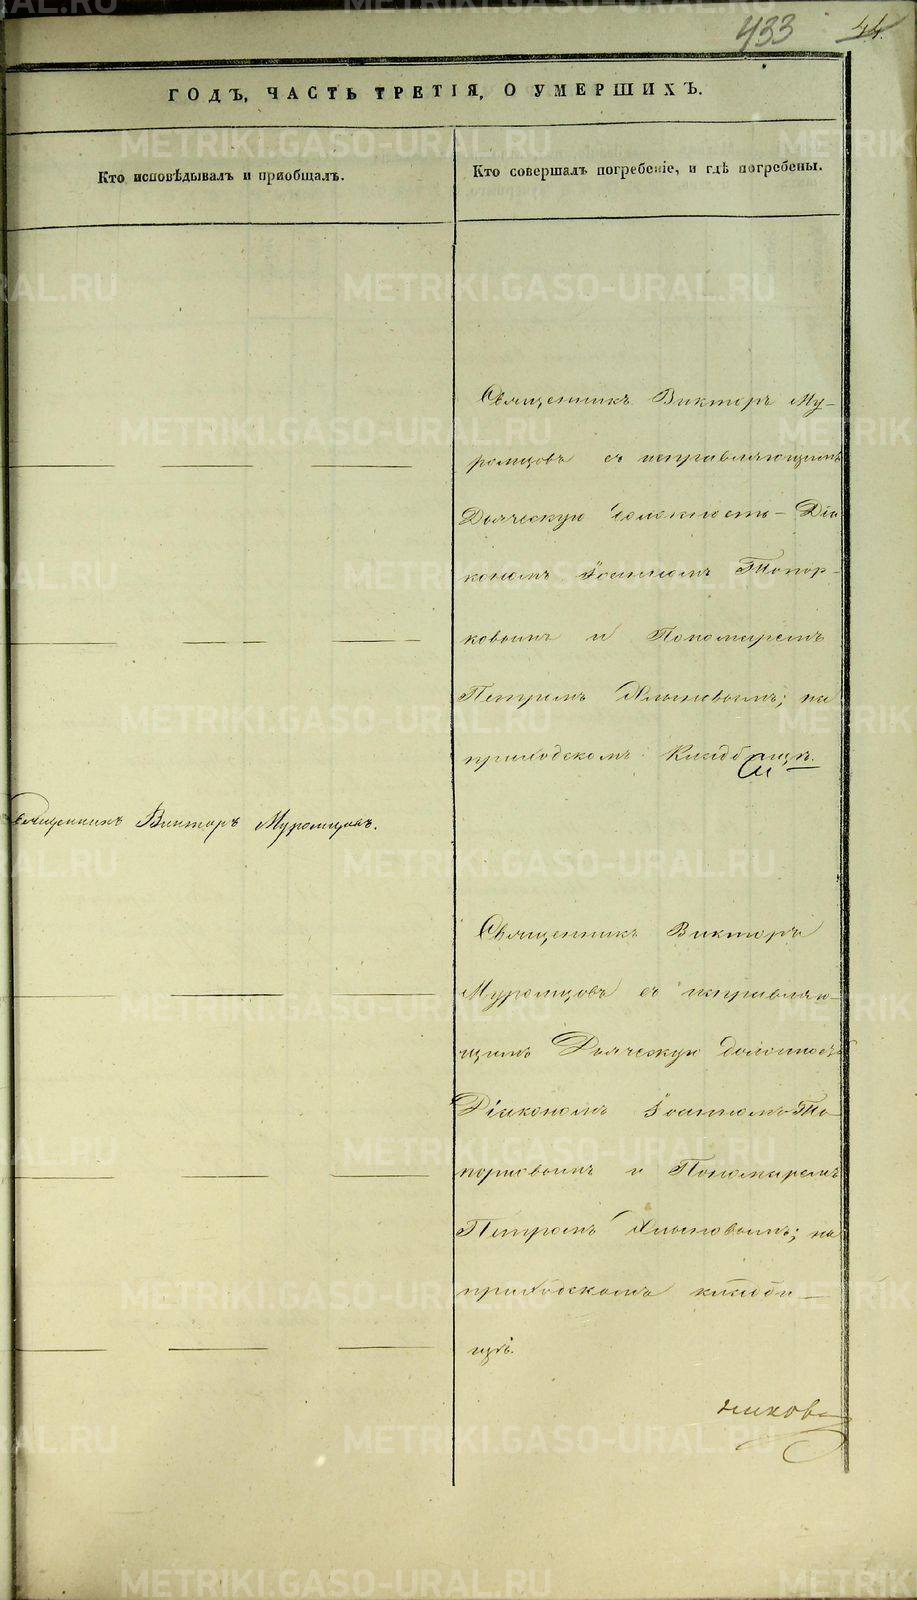 433 44.
ГОДЪ, ЧАСТЬ ТРЕТІЯ, О УМЕРШИХЪ.
Кто исповѣдывалъ и пріобщалъ.
Кто совершалъ погребеніе, и гдѣ погребены.
Священникъ Викторъ Му-
ромцовъ съ исправляющимъ
Дьяческую должность - Діа
кономъ Іоанномъ Топор-
ковымъ и Пономаремъ
Петромъ Хлыновымъ; на
приходскомъ Кладбищѣ.
Священникъ Викторъ Муромцовъ.
Священникъ Викторъ
Муромцовъ съ исправляю-
щимъ Дьяческую должность
Діакономъ Іоанномъ То-
порковымъ и Пономаремъ
Петромъ Хлыновымъ; на
приходскомъ кладби-
щѣ.
никовъ
METRIKI.GASO-URAL.RU